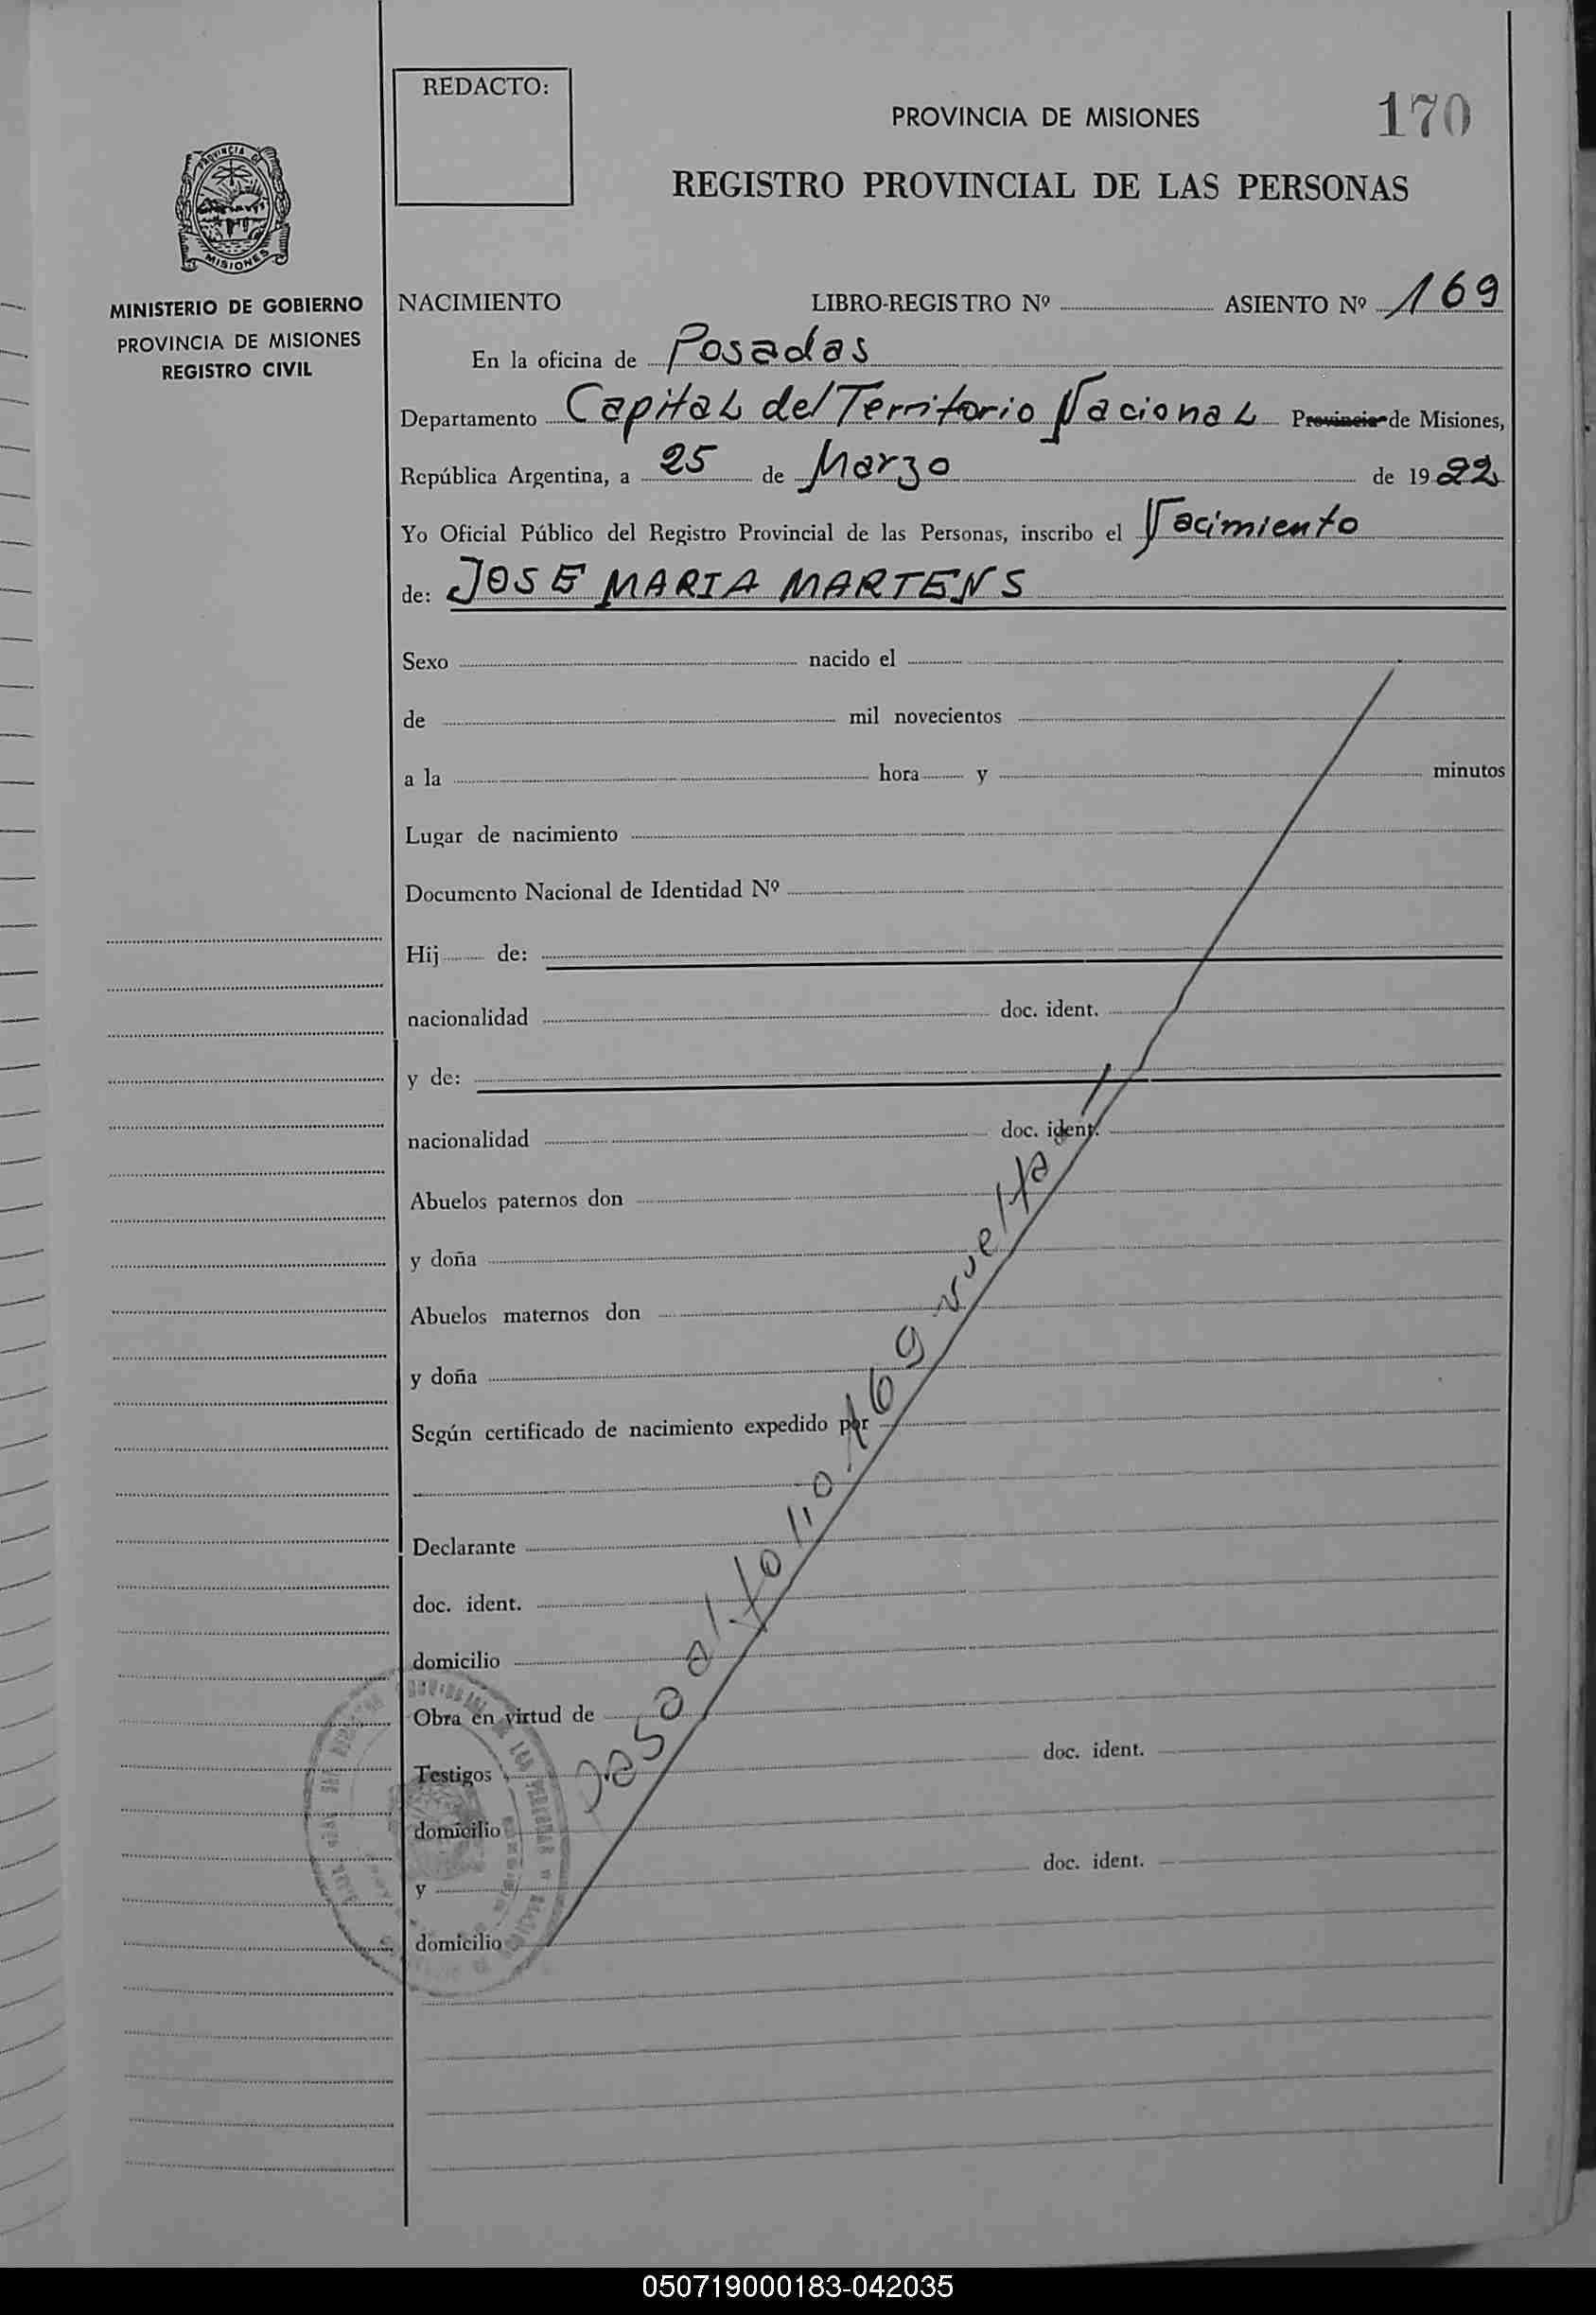 REDACTO:
PROVINCIA DE MISIONES
170
REGISTRO PROVINCIAL DE LAS PERSONAS
PROVINCIA DE
MISIONES
MINISTERIO DE GOBIERNO
PROVINCIA DE MISIONES
REGISTRO CIVIL
NACIMIENTO LIBRO-REGISTRO Nº ASIENTO Nº 169
En la oficina de Posadas
Departamento Capital del Territorio Nacional Provincia de Misiones,
República Argentina, a 25 de Marzo de 1922
Yo Oficial Público del Registro Provincial de las Personas, inscribo el Nacimiento
de: JOSE MARIA MARTENS
Sexo nacido el
de mil novecientos
a la hora y minutos
Lugar de nacimiento
Documento Nacional de Identidad Nº
Hij de:
nacionalidad doc. ident.
y de:
nacionalidad doc. ident.
Abuelos paternos don
y doña
Abuelos maternos don
y doña
Según certificado de nacimiento expedido por
Declarante
doc. ident.
domicilio
Obra en virtud de
Testigos doc. ident.
domicilio
y doc. ident.
domicilio
Pasa al folio 169 vuelta
050719000183-042035